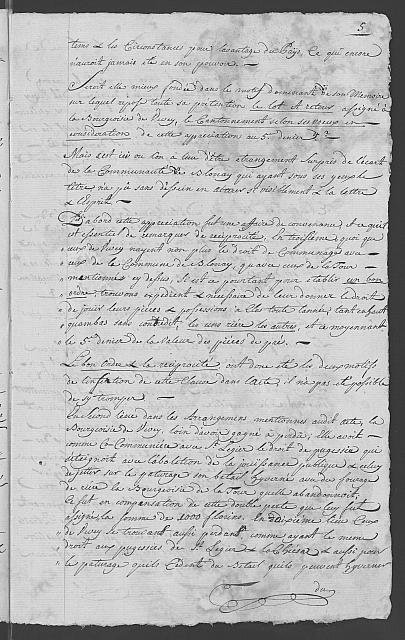 5
tems & les Circonstances pour lavantage du Pays, Ce qui encore
n'auroit jamais été en son pouvoir. —
Seroit elle mieux fondée dans le motif dominant de son Mémoire
sur lequel repose toute sa prétention le lot & retour assigné à
la Bourgeoisie de Vevey, le Cantonnement selon ses voeux en
considération de cette appréciation au 5me denier
Mais c'est ici ou lon a lieu d'être étrangement surpris de l'écart
de la Communauté de Blonay qui ayant sous ses yeux le
titre na pû sans dessein en altérer si visiblement & la lettre
& l'Esprit. —
D'abord cette appréciation fut une affaire de convenance, & ce qu'il
est essentiel de remarquer de réciprocité, En troisième, quoi que
ceux de Vevey nayent non plus le droit de Communage avec
ceux de la Commune de Blonay, qu'avec ceux de la Tour —
mentionnés cy dessus, il est a pourtant pour établir un bon
ordre, trouvons expédient & nécessaire de leur donner le droit
de jouir leurs pièces & possessions à Clos toute lannée, tant en haut
quen bas sans contredit, les uns rière les autres, et ce moyennant
le 5me denier de la valeur des pièces de prés. —
Le bon ordre & la réciprocité ont donc été les deux motifs
de linsertion de cette Clause dans lacte, il na pas été possible
de s'y tromper —
En second lieu dans les Arrangemens mentionnés audit acte, la
Bourgeoisie de Vevey, loin davoir gagné a perdu; Elle avoit —
comme Co-Communière avec St Legier le droit de pugessie qui
s'éteignoit avec labolition de la jouissance publique & celuy
de jetter sur le paturage son bétail hyverné avec du fourage
de rière la Bourgeoisie de la Tour quelle abandonnoit;
Ce fut en compensation de cette double perte que luy fut
assigné la somme de 1000 florins. En dixième lieu Ceux
" de Vevey se trouvant aussi perdant, comme ayant le meme
" droit aux pugessies de St Legier & la Chiesaz & aussi pour
" le paturage quils Cèdent du Betail quils peuvent hyverner
du